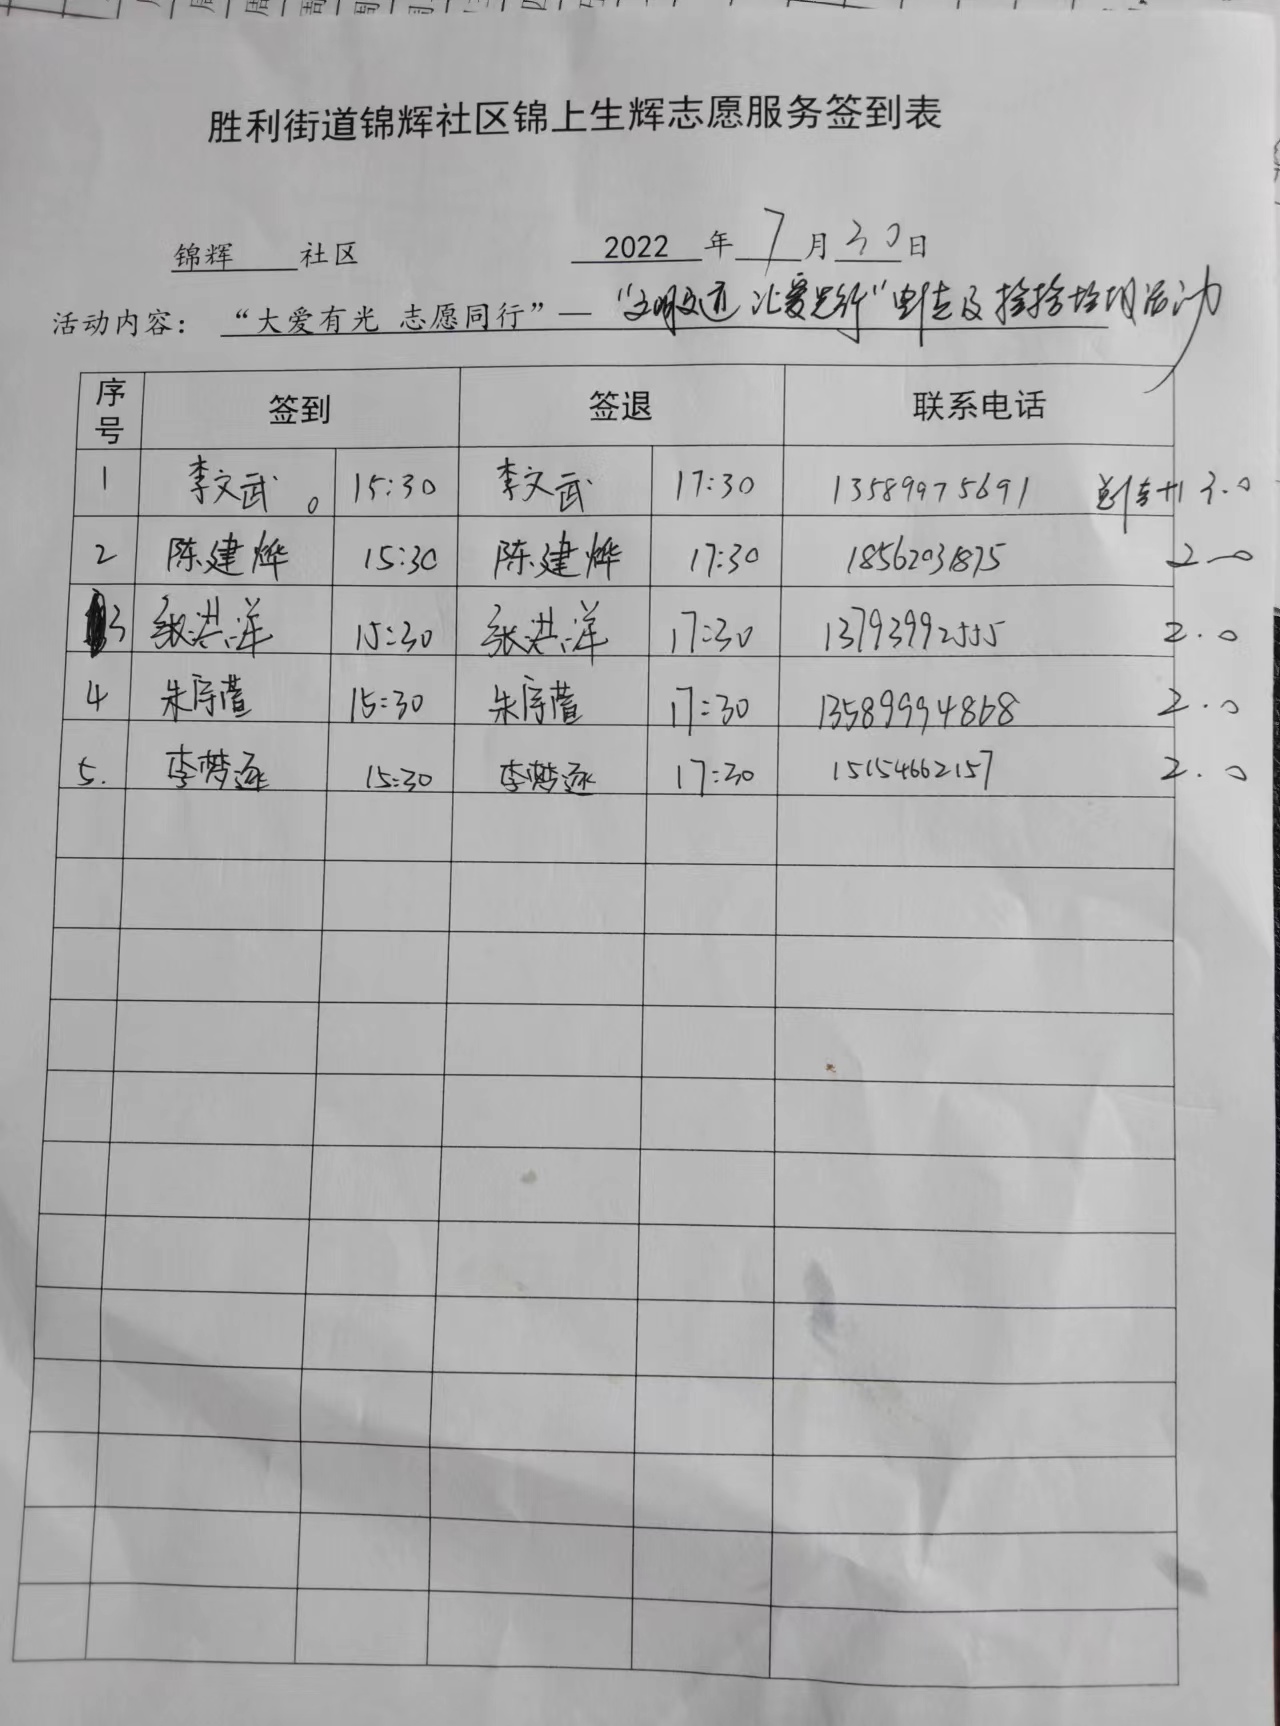 胜利街道锦辉社区锦上生辉志愿服务签到表
锦辉 社区 2022 年 7 月 30 日
活动内容： “大爱有光 志愿同行”— “文明交通 让爱先行” 宣传及捡拾垃圾活动
序号 签到 签退 联系电话
1 李文武 15:30 李文武 17:30 13589975691 宣传+1 3.0
2 陈建烨 15:30 陈建烨 17:30 18562031875 2.0
3 张洪洋 15:30 张洪洋 17:30 13793992555 2.0
4 朱 15:30 朱 17:30 13589994868 2.0
5. 李梦逐 15:30 李梦逐 17:30 15154662157 2.0